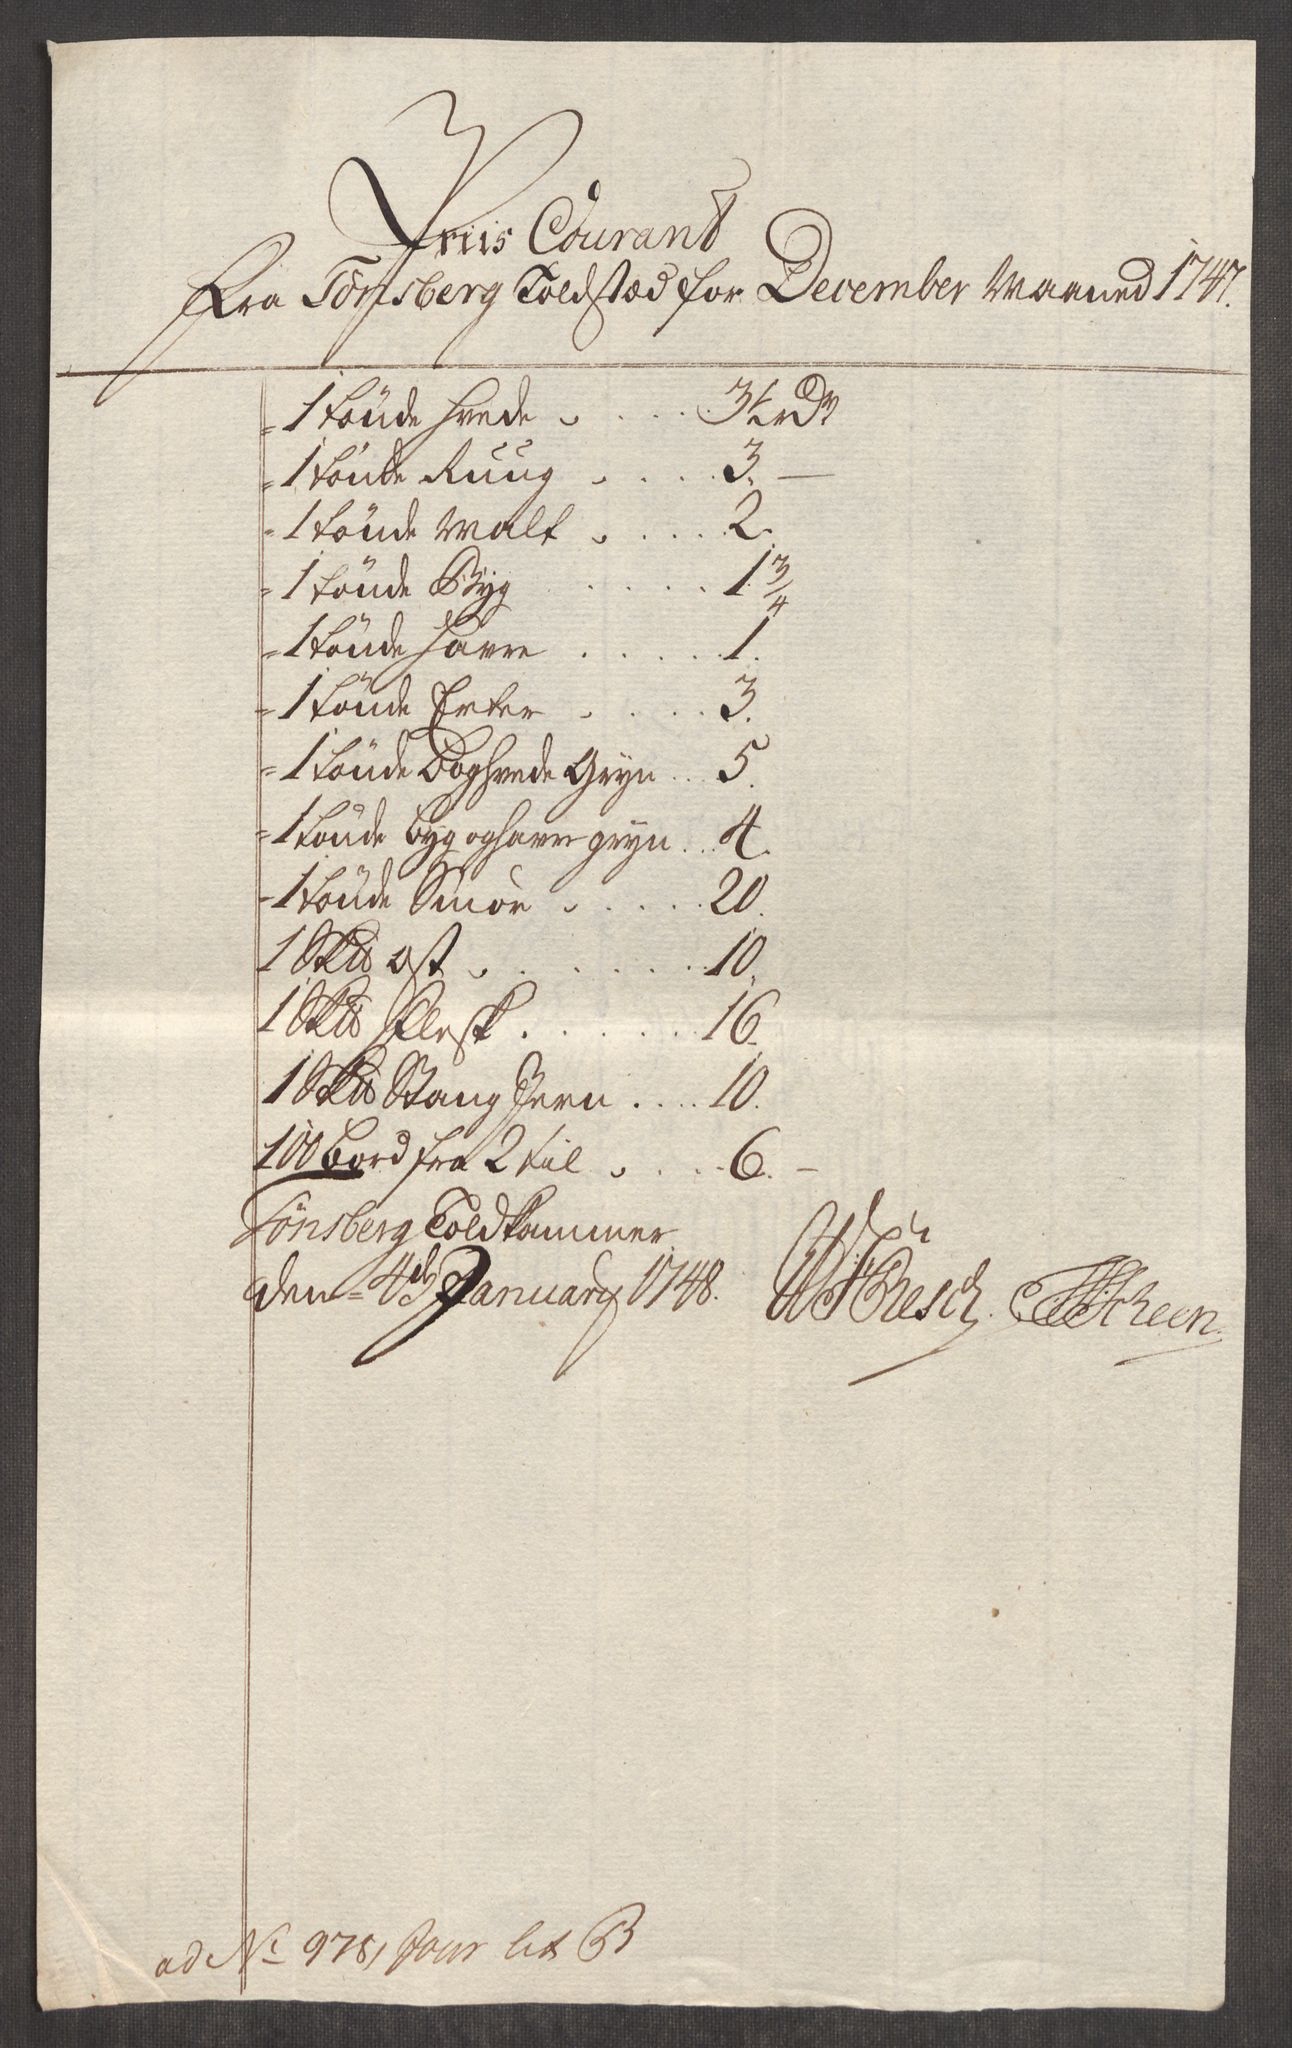 Priis Courant
Fra Tönsberg Toldstæd for December Maaned 1747.
1 tönde Hvede . . . . 3½ rDr
1 tönde Ruug . . . . 3. —
1 tönde Malt . . . . 2.
1 tönde Byg . . . . . 1 3/4
1 tönde Havre . . . . . 1.
1 tönde Erter . . . . 3.
1 tönde Boghvede Gryn . . 5.
1 tönde byg og havre gryn . . 4.
1 tönde Smör . . . . . 20.
1 Sk℔ ost . . . . . . 10.
1 Sk℔ Flesk . . . . . . 16.
1 Sk℔ Stang Jern . . . . 10.
100 bord fra 2 til . . . . 6. —
Tönsberg Toldkammer
den 4de January 1748. Resch. Scheen.
ad No 978, Jour lit B